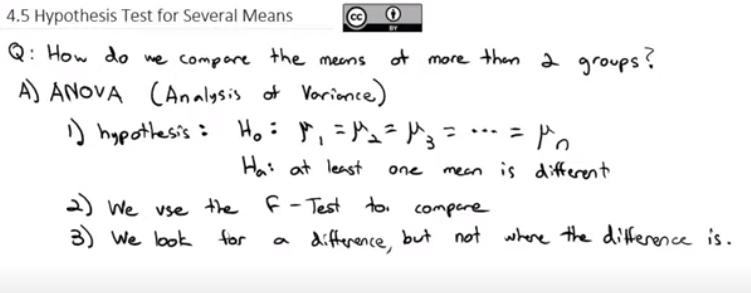 4.5 Hypothesis Test for Several Means
cc BY
Q: How do we compare the means of more than 2 groups?
A) ANOVA (Analysis of Variance)
1) hypothesis: H₀: μ₁ = μ₂ = μ₃ = ... = μₙ
Hₐ: at least one mean is different
2) We use the F-Test to compare
3) We look for a difference, but not where the difference is.